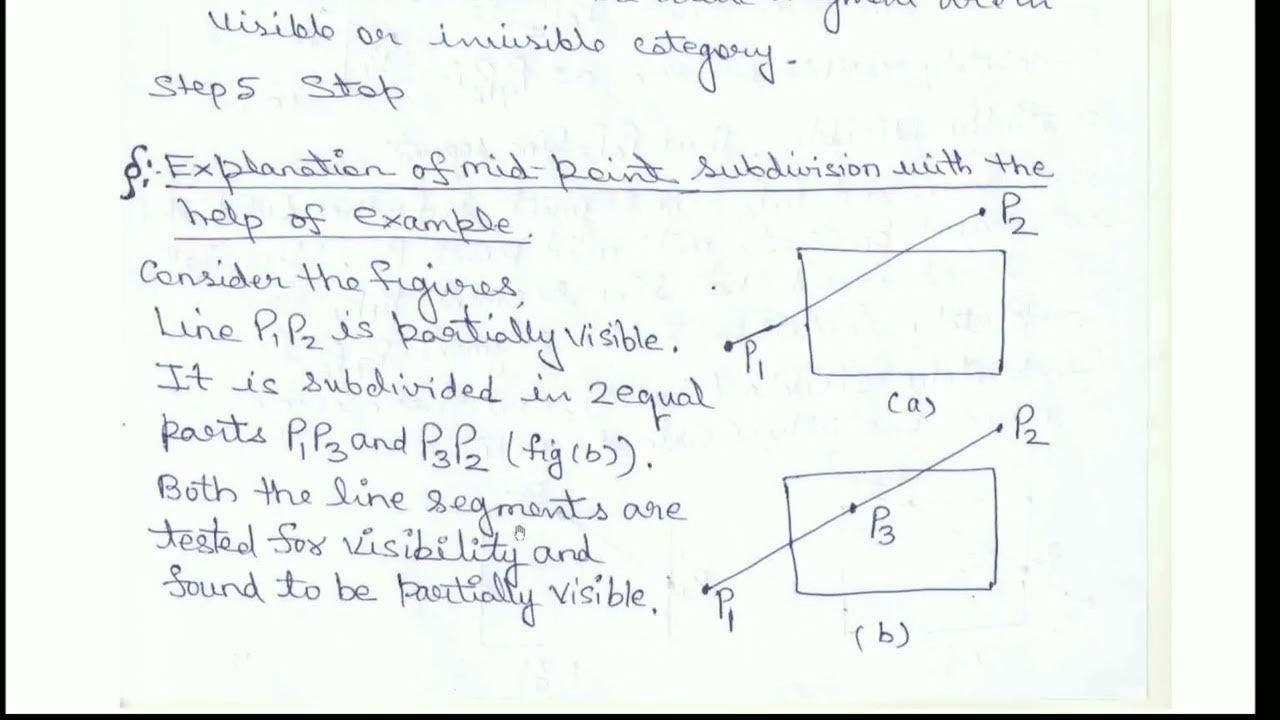 visible or invisible category.
Step 5 Stop
Q:- Explanation of mid-point subdivision with the
help of example.
Consider the figures,
Line P₁P₂ is partially visible.
It is subdivided in 2 equal
parts P₁P₃ and P₃P₂ (fig(b)).
Both the line segments are
tested for visibility and
found to be partially visible.
P₂
P₁
(a)
P₂
P₃
P₁
(b)